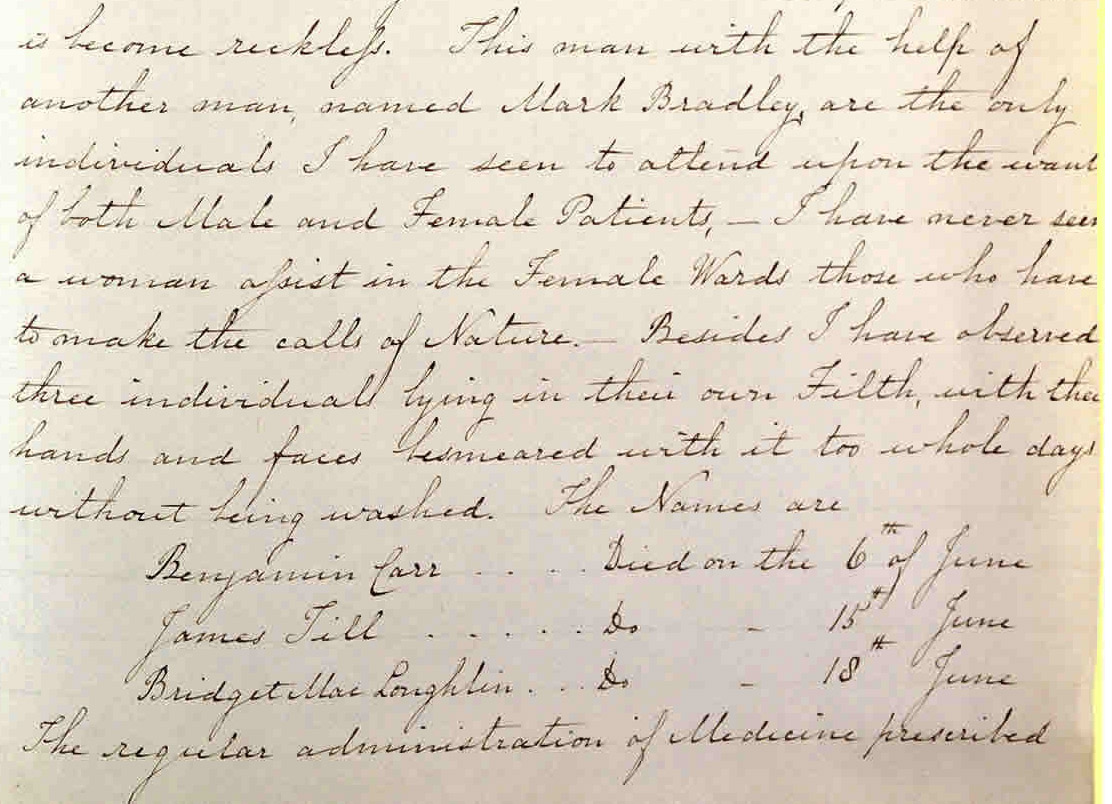 is become reckleſs. This man with the help of
another man, named Mark Bradley, are the only
individuals I have seen to attend upon the want
of both Male and Female Patients, – I have never seen
a woman aſsist in the Female Wards those who have
to make the calls of Nature. – Besides I have observed
three individuals lying in their own Filth, with their
hands and faces besmeared with it too whole days
without being washed. The Names are
Benjamin Carr . . . . Died on the 6th of June
James Till . . . . . . Do - 15th June
Bridget Mac Loughlin . . . Do - 18th June
The regular administration of Medecine prescribed